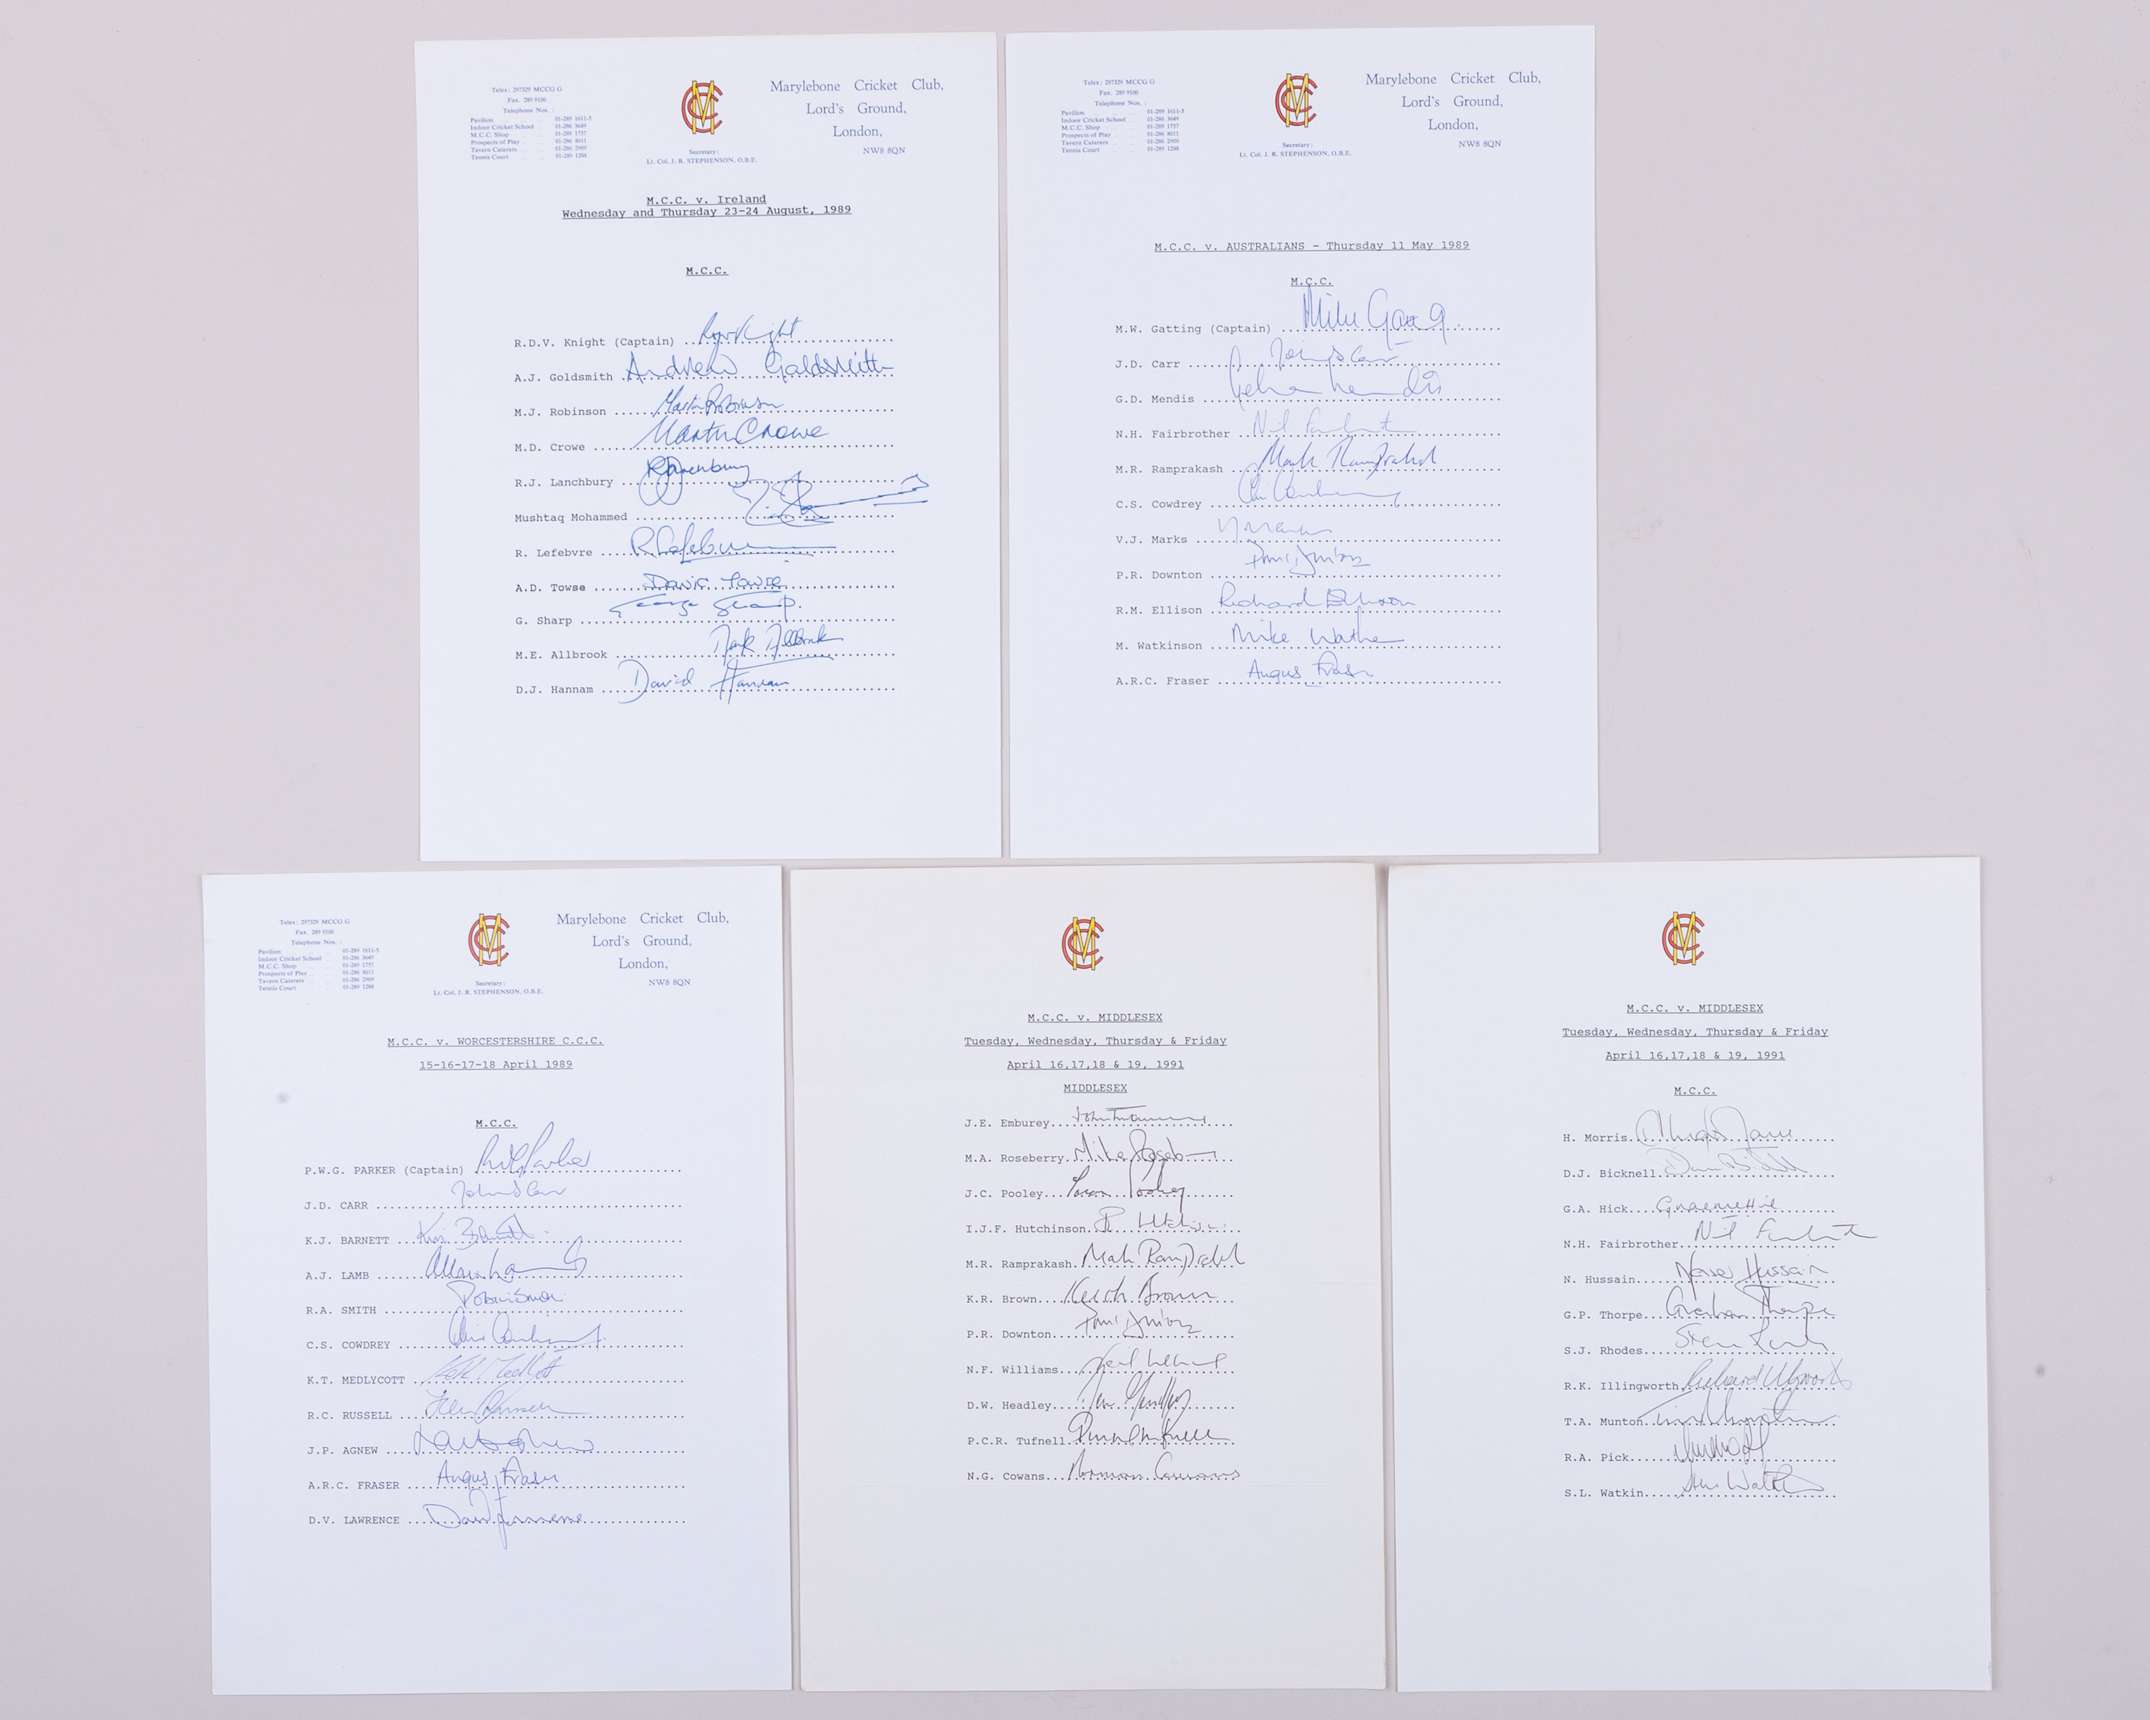 Telex: 297329 MCCG G
Fax. 289 9100
Telephone Nos. :
Pavilion 01-289 1611-5
Indoor Cricket School 01-286 3649
M.C.C. Shop 01-289 1757
Prospects of Play 01-286 8011
Tavern Caterers 01-286 2909
Tennis Court 01-289 1288
MCC
Secretary:
Lt. Col. J. R. STEPHENSON, O.B.E.
Marylebone Cricket Club,
Lord's Ground,
London,
NW8 8QN
M.C.C. v. Ireland
Wednesday and Thursday 23-24 August, 1989
M.C.C.
R.D.V. Knight (Captain)
A.J. Goldsmith Andrew Goldsmith
M.J. Robinson Martin Robinson
M.D. Crowe Martin Crowe
R.J. Lanchbury RJLanchbury
Mushtaq Mohammed
R. Lefebvre R Lefebvre
A.D. Towse David Towse
G. Sharp George Sharp.
M.E. Allbrook Mark Allbrook
D.J. Hannam David Hannam
Telex: 297329 MCCG G
Fax. 289 9100
Telephone Nos. :
Pavilion 01-289 1611-5
Indoor Cricket School 01-286 3649
M.C.C. Shop 01-289 1757
Prospects of Play 01-286 8011
Tavern Caterers 01-286 2909
Tennis Court 01-289 1288
MCC
Secretary:
Lt. Col. J. R. STEPHENSON, O.B.E.
Marylebone Cricket Club,
Lord's Ground,
London,
NW8 8QN
M.C.C. v. AUSTRALIANS - Thursday 11 May 1989
M.C.C.
M.W. Gatting (Captain) Mike Gatting
J.D. Carr John D Carr
G.D. Mendis
N.H. Fairbrother Neil Fairbrother
M.R. Ramprakash Mark Ramprakash
C.S. Cowdrey Chris Cowdrey
V.J. Marks V Marks
P.R. Downton Paul Downton
R.M. Ellison Richard Ellison
M. Watkinson Mike Watkinson
A.R.C. Fraser Angus Fraser
Telex: 297329 MCCG G
Fax. 289 9100
Telephone Nos. :
Pavilion 01-289 1611-5
Indoor Cricket School 01-286 3649
M.C.C. Shop 01-289 1757
Prospects of Play 01-286 8011
Tavern Caterers 01-286 2909
Tennis Court 01-289 1288
MCC
Secretary:
Lt. Col. J. R. STEPHENSON, O.B.E.
Marylebone Cricket Club,
Lord's Ground,
London,
NW8 8QN
M.C.C. v. WORCESTERSHIRE C.C.C.
15-16-17-18 April 1989
M.C.C.
P.W.G. PARKER (Captain) Paul Parker
J.D. CARR John D Carr
K.J. BARNETT Kim Barnett
A.J. LAMB Allan Lamb
R.A. SMITH Robin Smith
C.S. COWDREY Chris Cowdrey
K.T. MEDLYCOTT Keith Medlycott
R.C. RUSSELL
J.P. AGNEW
A.R.C. FRASER Angus Fraser
D.V. LAWRENCE David Lawrence
MCC
M.C.C. v. MIDDLESEX
Tuesday, Wednesday, Thursday & Friday
April 16,17,18 & 19, 1991
MIDDLESEX
J.E. Emburey John Emburey
M.A. Roseberry Mike Roseberry
J.C. Pooley Jason Pooley
I.J.F. Hutchinson
M.R. Ramprakash Mark Ramprakash
K.R. Brown Keith Brown
P.R. Downton Paul Downton
N.F. Williams Neil Williams
D.W. Headley Dean Headley
P.C.R. Tufnell
N.G. Cowans Norman Cowans
MCC
M.C.C. v. MIDDLESEX
Tuesday, Wednesday, Thursday & Friday
April 16,17,18 & 19, 1991
M.C.C.
H. Morris Hugh Morris
D.J. Bicknell Darren Bicknell
G.A. Hick Graeme Hick
N.H. Fairbrother Neil Fairbrother
N. Hussain Nasser Hussain
G.P. Thorpe Graham Thorpe
S.J. Rhodes Steve Rhodes
R.K. Illingworth Richard Illingworth
T.A. Munton Tim Munton
R.A. Pick
S.L. Watkin Steve Watkin